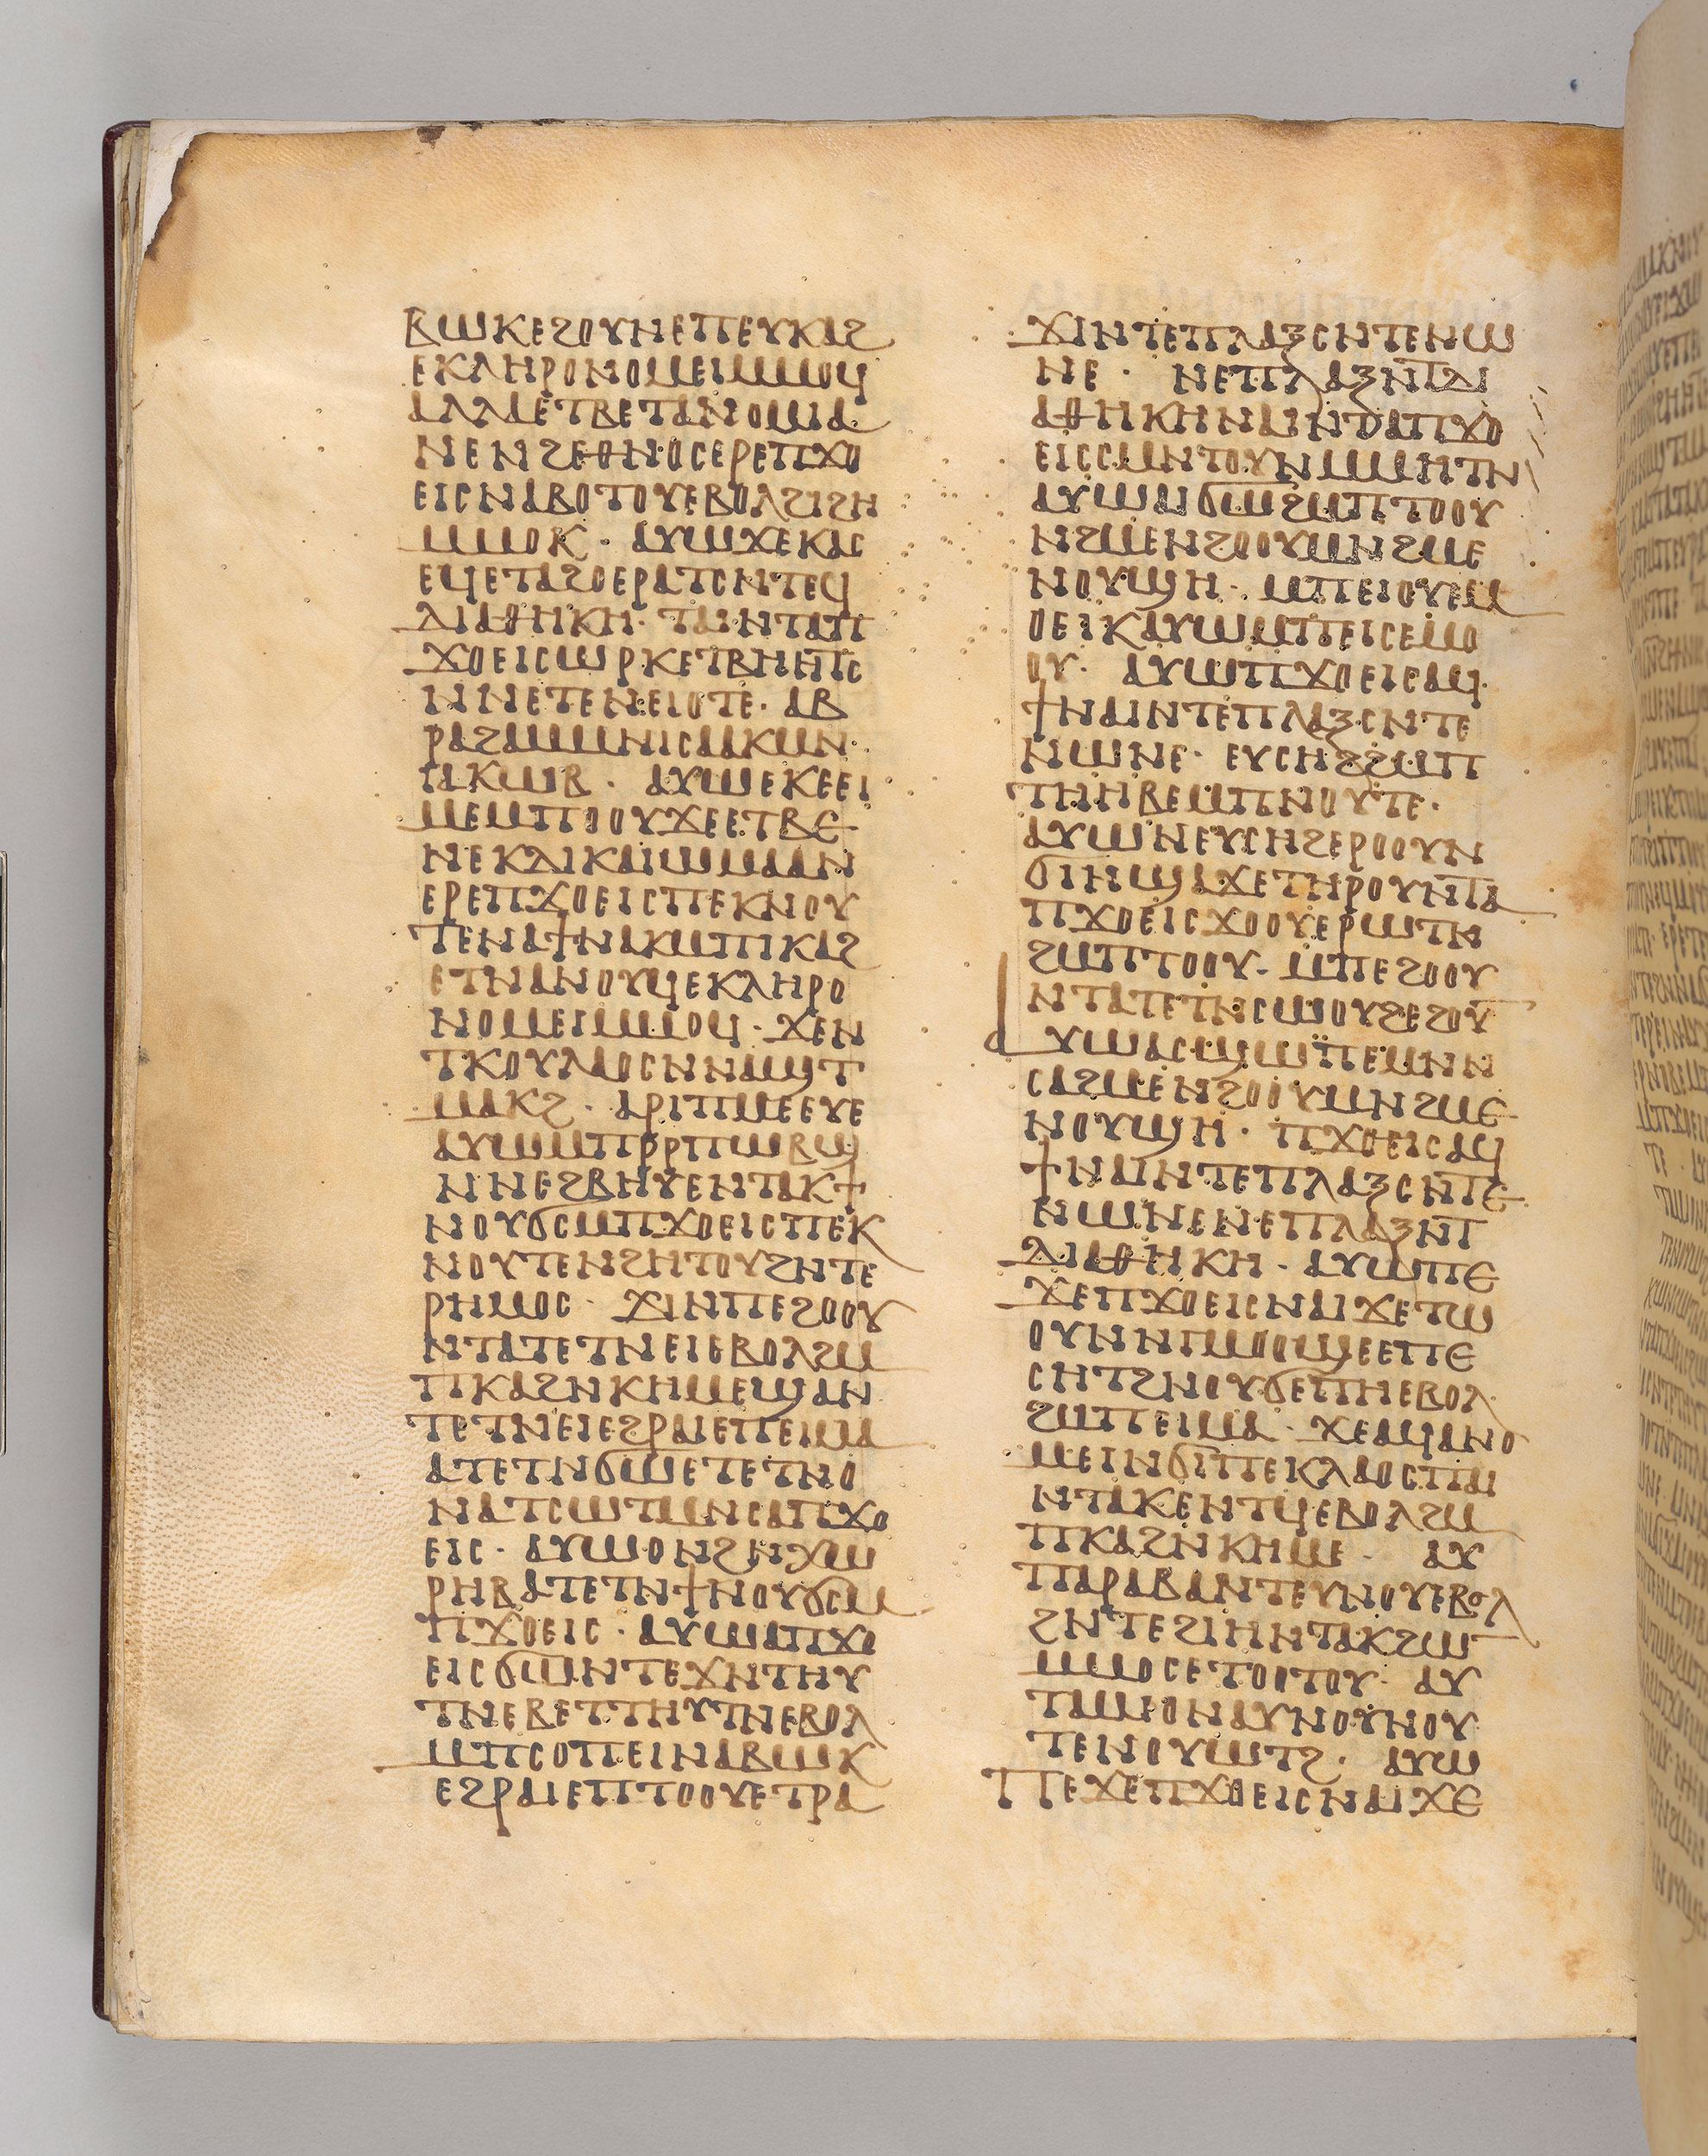 ⲃⲱⲕⲉϩⲟⲩⲛⲉⲡⲉⲩⲕⲁϩ
ⲉⲕⲗⲏⲣⲟⲛⲟⲙⲉⲓⲙⲙⲟϥ
ⲁⲗⲗⲁⲉⲧⲃⲉⲧⲁⲛⲟⲙⲓⲁ
ⲛⲉⲛϩⲉⲑⲛⲟⲥⲉⲣⲉⲡϫⲟ
ⲉⲓⲥⲛⲁⲃⲟⲧⲟⲩⲉⲃⲟⲗϩⲓϩⲏ
ⲙⲙⲟⲕ · ⲁⲩⲱϫⲉⲕⲁⲥ
ⲉϥⲉⲧⲁϩⲟⲉⲣⲁⲧⲥⲛⲧⲉϥ
ⲇⲓⲁⲑⲏⲕⲏ · ⲧⲁⲓⲛⲧⲁⲡ
ϫⲟⲉⲓⲥⲱⲣⲕⲉⲧⲃⲏⲏⲧⲥ
ⲛⲛⲉⲧⲉⲛⲉⲓⲟⲧⲉ · ⲁⲃ
ⲣⲁϩⲁⲙⲙⲛⲓⲥⲁⲁⲕⲙⲛ
ⲓⲁⲕⲱⲃ · ⲁⲩⲱⲉⲕⲉⲉⲓ
ⲙⲉⲙⲡⲟⲟⲩϫⲉⲉⲧⲃⲉ
ⲛⲉⲕⲇⲓⲕⲁⲓⲱⲙⲁⲁⲛ
ⲉⲣⲉⲡϫⲟⲉⲓⲥⲡⲉⲕⲛⲟⲩ
ⲧⲉⲛⲁϯⲛⲁⲕⲙⲡⲓⲕⲁϩ
ⲉⲧⲛⲁⲛⲟⲩϥⲉⲕⲗⲏⲣⲟ
ⲛⲟⲙⲉⲓⲙⲙⲟϥ · ϫⲉⲛ
ⲧⲕⲟⲩⲗⲁⲟⲥⲛⲛⲁϣⲧ
ⲙⲁⲕϩ · ⲁⲣⲓⲡⲙⲉⲉⲩⲉ
ⲁⲩⲱⲙⲡⲣⲣⲡⲱⲃϣ
ⲛⲛⲉϩⲃⲏⲩⲉⲛⲧⲁⲕϯ
ⲛⲟⲩϭⲥⲙⲡϫⲟⲉⲓⲥⲡⲉⲕ
ⲛⲟⲩⲧⲉⲛϩⲏⲧⲟⲩϩⲛⲧⲉ
ⲣⲏⲙⲟⲥ · ϫⲓⲛⲡⲉϩⲟⲟⲩ
ⲛⲧⲁⲧⲉⲧⲛⲉⲓⲉⲃⲟⲗϩⲙ
ⲡⲕⲁϩⲛⲕⲏⲙⲉϣⲁⲛ
ⲧⲉⲧⲛⲉⲓⲉϩⲣⲁⲓⲉⲡⲉⲓⲙⲁ
ⲁⲧⲉⲧⲛϭⲱⲉⲧⲉⲧⲛⲟ
ⲛⲁⲧⲥⲱⲧⲙⲛⲥⲁⲡϫⲟ
ⲉⲓⲥ · ⲁⲩⲱⲟⲛϩⲛⲭⲱ
ⲣⲏⲃⲁⲧⲉⲧⲛϯⲛⲟⲩϭⲥⲙ
ⲡϫⲟⲉⲓⲥ · ⲁⲩⲱⲁⲡϫⲟ
ⲉⲓⲥϭⲱⲛⲧⲉϫⲛⲧⲏⲩ
ⲧⲛⲉⲃⲉⲧⲧⲏⲩⲧⲛⲉⲃⲟⲗ
ⲙⲡⲥⲟⲡⲉⲓⲛⲁⲃⲱⲕ
ⲉϩⲣⲁⲓⲉⲡⲧⲟⲟⲩⲉⲧⲣⲁ
ϫⲓⲛⲧⲉⲡⲗⲁⲝⲥⲛⲧⲉⲛⲱ
ⲛⲉ · ⲛⲉⲡⲗⲁⲝⲛⲧⲇⲓ
ⲁⲑⲏⲕⲏⲛⲁⲓⲛⲧⲁⲡϫⲟ
ⲉⲓⲥⲥⲙⲛⲧⲟⲩⲛⲙⲙⲏⲧⲛ
ⲁⲩⲱⲁⲓϭⲱϩⲙⲡⲧⲟⲟⲩ
ⲛϩⲙⲉⲛϩⲟⲟⲩⲙⲛϩⲙⲉ
ⲛⲟⲩϣⲏ · ⲙⲡⲉⲓⲟⲩⲉⲙ
ⲟⲉⲓⲕⲁⲩⲱⲙⲡⲉⲓⲥⲉⲙⲟ
ⲟⲩ · ⲁⲩⲱⲡϫⲟⲉⲓⲥⲁϥ
ϯⲛⲁⲓⲛⲧⲉⲡⲗⲁⲝⲥⲛⲧⲉ
ⲛⲱⲛⲉ · ⲉⲩⲥⲏϩϩⲙⲡ
ⲧⲏⲏⲃⲉⲙⲡⲛⲟⲩⲧⲉ ·
ⲁⲩⲱⲛⲉⲩⲥⲏϩⲉⲣⲟⲟⲩⲛ
ϭⲓⲛϣⲁϫⲉⲧⲏⲣⲟⲩⲛⲧⲁ
ⲡϫⲟⲉⲓⲥϫⲟⲟⲩⲉⲣⲱⲧⲛ
ϩⲙⲡⲧⲟⲟⲩ · ⲙⲡⲉϩⲟⲟⲩ
ⲛⲧⲁⲧⲉⲧⲛⲥⲱⲟⲩϩⲉϩⲟⲩ
ⲁⲩⲱⲁⲥϣⲱⲡⲉⲙⲛⲛ
ⲥⲁϩⲙⲉⲛϩⲟⲟⲩⲙⲛϩⲙⲉ
ⲛⲟⲩϣⲏ · ⲡϫⲟⲉⲓⲥⲁϥ
ϯⲛⲁⲓⲛⲧⲉⲡⲗⲁⲝⲥⲛⲧⲉ
ⲛⲱⲛⲉⲛⲉⲡⲗⲁⲝⲛⲧ
ⲇⲓⲁⲑⲏⲕⲏ · ⲁⲩⲱⲡⲉ
ϫⲉⲡϫⲟⲉⲓⲥⲛⲁⲓϫⲉⲧⲱ
ⲟⲩⲛⲛⲅⲙⲟⲟϣⲉⲉⲡⲉ
ⲥⲏⲧϩⲛⲟⲩϭⲉⲡⲏⲉⲃⲟⲗ
ϩⲙⲡⲉⲓⲙⲁ · ϫⲉⲁϥⲁⲛⲟ
ⲙⲉⲓⲛϭⲓⲡⲉⲕⲗⲁⲟⲥⲡⲁⲓ
ⲛⲧⲁⲕⲉⲛⲧϥⲉⲃⲟⲗϩⲙ
ⲡⲕⲁϩⲛⲕⲏⲙⲉ · ⲁⲩ
ⲡⲁⲣⲁⲃⲁⲛⲧⲉⲩⲛⲟⲩⲉⲃⲟⲗ
ϩⲛⲧⲉϩⲓⲏⲛⲧⲁⲕϩⲱ
ⲙⲙⲟⲥⲉⲧⲟⲟⲧⲟⲩ · ⲁⲩ
ⲧⲁⲙⲓⲟⲛⲁⲩⲛⲟⲩⲛⲟⲩ
ⲧⲉⲓⲛⲟⲩⲱⲧϩ · ⲁⲩⲱ
ⲡⲉϫⲉⲡϫⲟⲉⲓⲥⲛⲁⲓϫⲉ